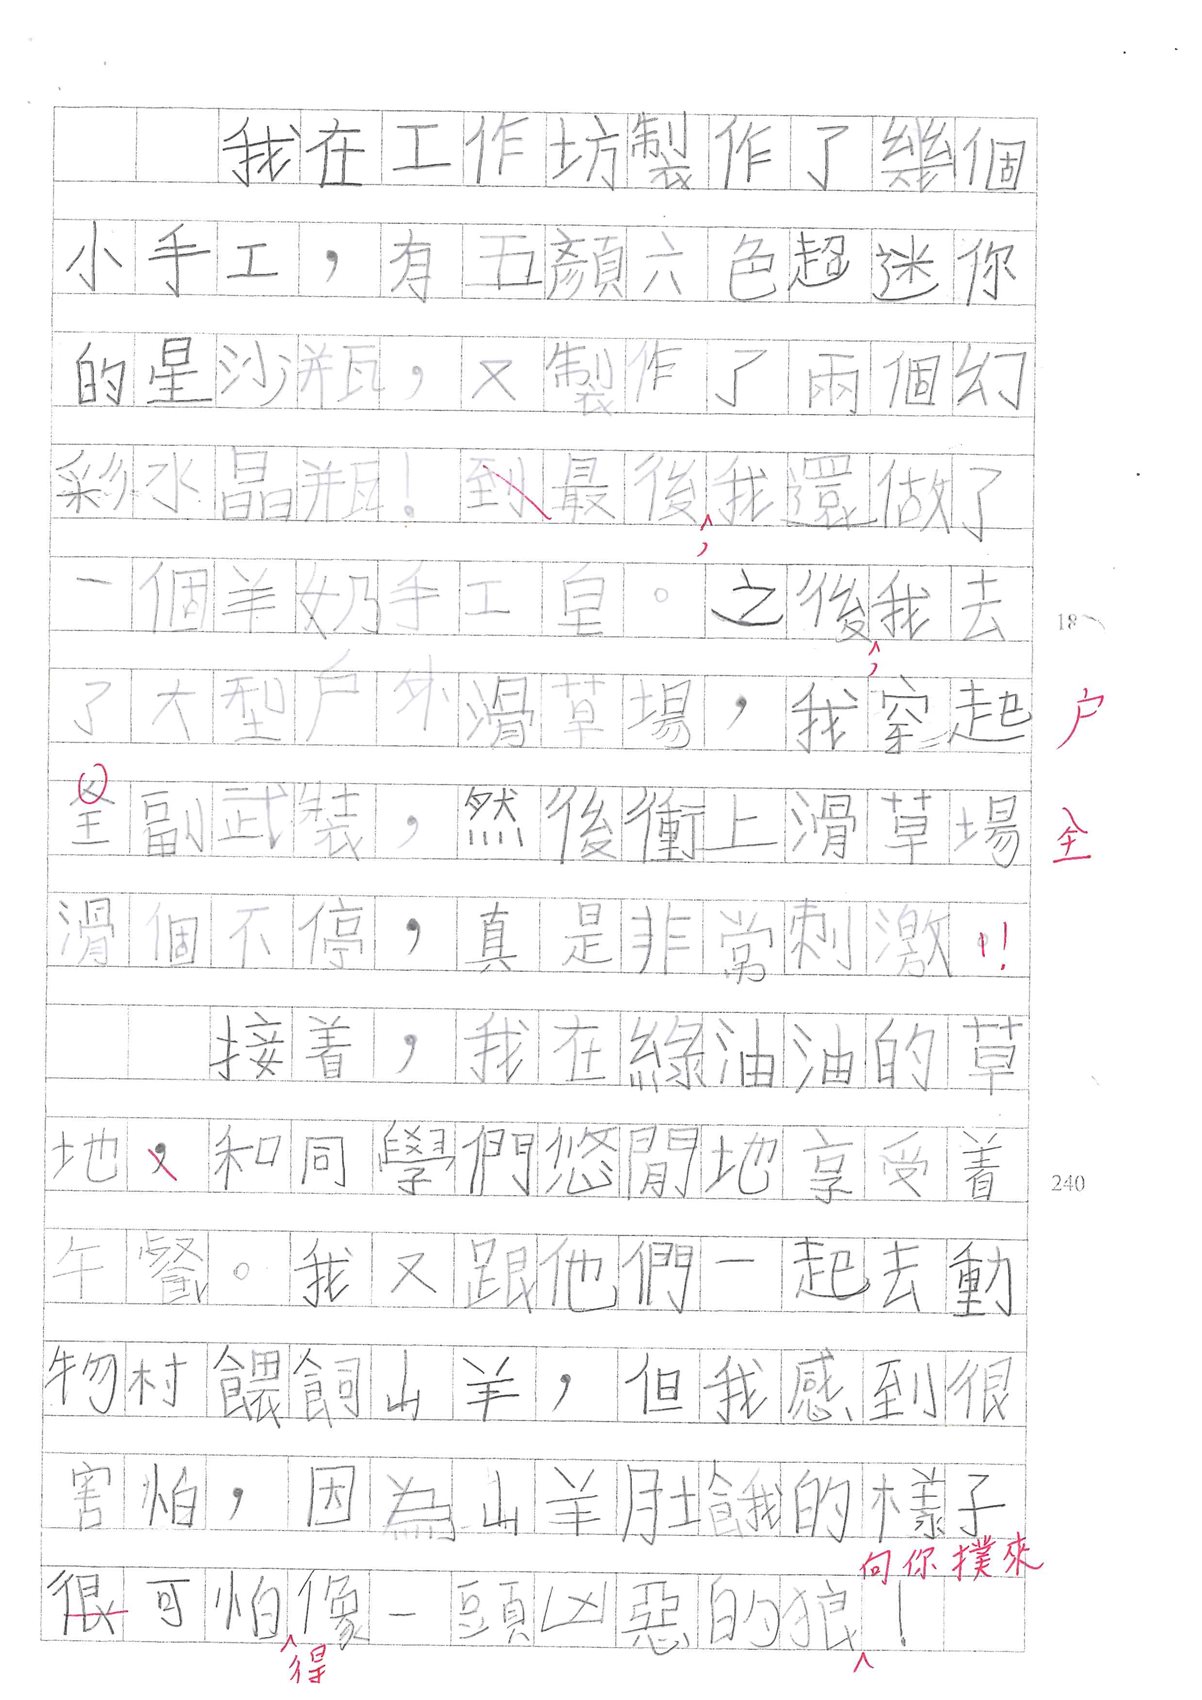 我在工作坊製作了幾個
小手工，有五顏六色超迷你
的星沙瓶，又製作了兩個幻
彩水晶瓶！到最後我還做了
，
一個羊奶手工皂。之後我去
18
，
了大型户外滑草場，我穿起
户
全副武裝，然後衝上滑草場
全
滑個不停，真是非常刺激！
接着，我在綠油油的草
地，和同學們悠閒地享受着
240
午餐。我又跟他們一起去動
物村餵飼山羊，但我感到很
害怕，因為山羊肚餓的樣子
向你撲來
很可怕像一頭凶惡的狼！
得